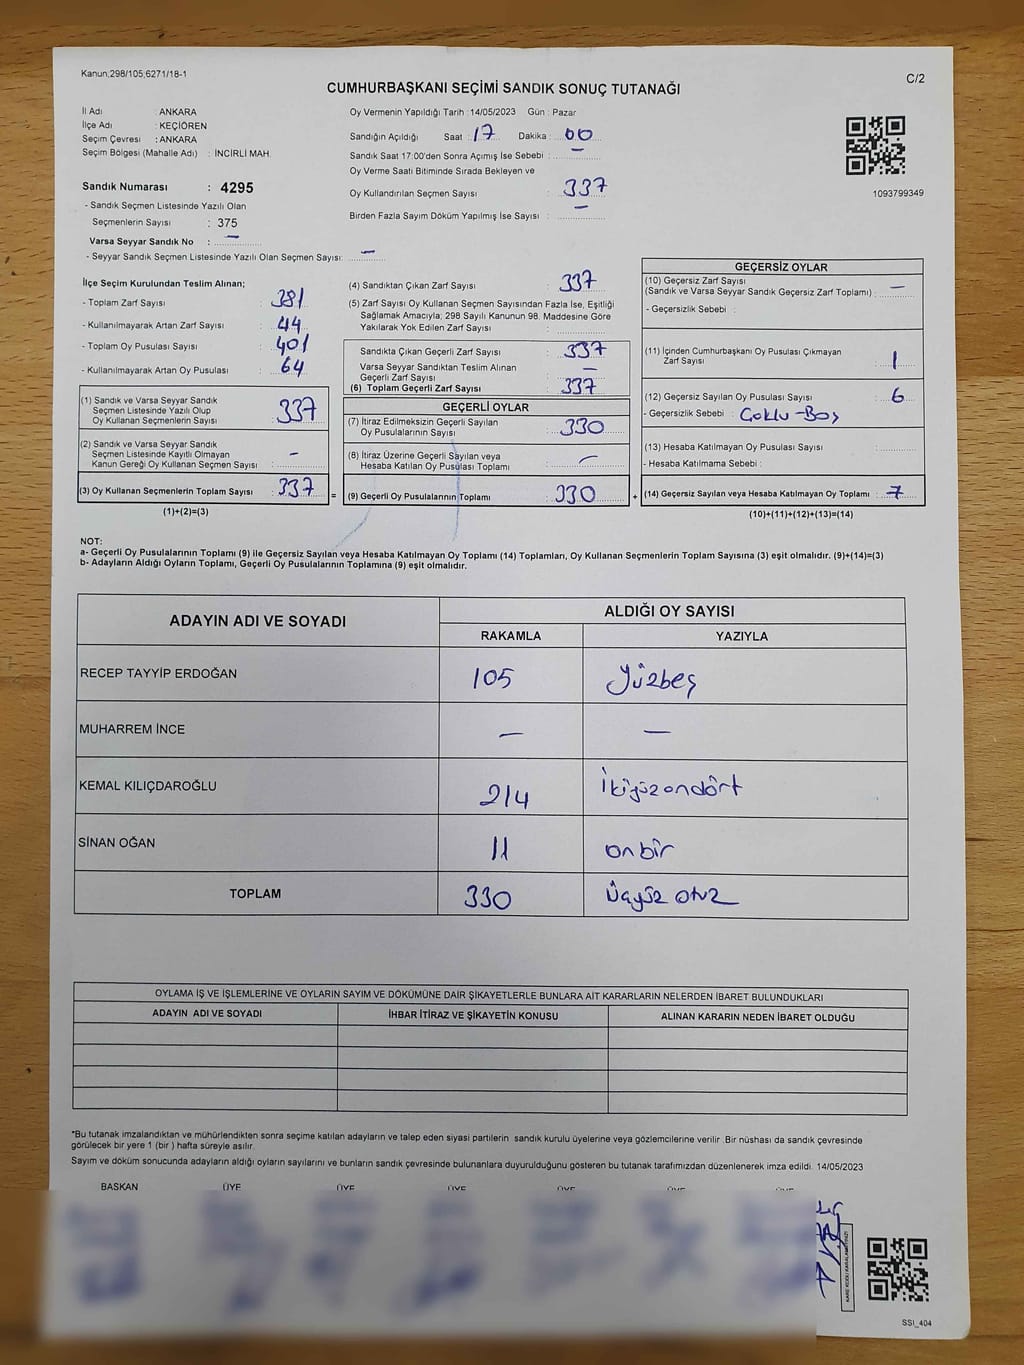 Kanun;298/105;6271/18-1
C/2
CUMHURBAŞKANI SEÇİMİ SANDIK SONUÇ TUTANAĞI
İl Adı : ANKARA
İlçe Adı : KEÇİÖREN
Seçim Çevresi : ANKARA
Seçim Bölgesi (Mahalle Adı) : İNCİRLİ MAH.
Sandık Numarası : 4295
- Sandık Seçmen Listesinde Yazılı Olan
Seçmenlerin Sayısı : 375
Varsa Seyyar Sandık No : —
- Seyyar Sandık Seçmen Listesinde Yazılı Olan Seçmen Sayısı: —
Oy Vermenin Yapıldığı Tarih :14/05/2023 Gün : Pazar
Sandığın Açıldığı Saat : 17 Dakika : 00
Sandık Saat 17:00'den Sonra Açımış İse Sebebi : —
Oy Verme Saati Bitiminde Sırada Bekleyen ve
Oy Kullandırılan Seçmen Sayısı : 337
Birden Fazla Sayım Döküm Yapılmış İse Sayısı : —
1093799349
İlçe Seçim Kurulundan Teslim Alınan;
- Toplam Zarf Sayısı : 381
- Kullanılmayarak Artan Zarf Sayısı : 44
- Toplam Oy Pusulası Sayısı : 401
- Kullanılmayarak Artan Oy Pusulası : 64
(1) Sandık ve Varsa Seyyar Sandık
Seçmen Listesinde Yazılı Olup
Oy Kullanan Seçmenlerin Sayısı : 337
(2) Sandık ve Varsa Seyyar Sandık
Seçmen Listesinde Kayıtlı Olmayan
Kanun Gereği Oy Kullanan Seçmen Sayısı : -
(3) Oy Kullanan Seçmenlerin Toplam Sayısı : 337
(1)+(2)=(3)
=
(4) Sandıktan Çıkan Zarf Sayısı : 337
(5) Zarf Sayısı Oy Kullanan Seçmen Sayısından Fazla İse, Eşitliği
Sağlamak Amacıyla; 298 Sayılı Kanunun 98. Maddesine Göre
Yakılarak Yok Edilen Zarf Sayısı :
Sandıkta Çıkan Geçerli Zarf Sayısı : 337
Varsa Seyyar Sandıktan Teslim Alınan
Geçerli Zarf Sayısı : —
(6) Toplam Geçerli Zarf Sayısı : 337
GEÇERLİ OYLAR
(7) İtiraz Edilmeksizin Geçerli Sayılan
Oy Pusulalarının Sayısı : 330
(8) İtiraz Üzerine Geçerli Sayılan veya
Hesaba Katılan Oy Pusulası Toplamı : —
(9) Geçerli Oy Pusulalarının Toplamı : 330
+
GEÇERSİZ OYLAR
(10) Geçersiz Zarf Sayısı
(Sandık ve Varsa Seyyar Sandık Geçersiz Zarf Toplamı) : —
- Geçersizlik Sebebi :
(11) İçinden Cumhurbaşkanı Oy Pusulası Çıkmayan
Zarf Sayısı : 1
(12) Geçersiz Sayılan Oy Pusulası Sayısı : 6
- Geçersizlik Sebebi : Çoklu-Boş
(13) Hesaba Katılmayan Oy Pusulası Sayısı :
- Hesaba Katılmama Sebebi :
(14) Geçersiz Sayılan veya Hesaba Katılmayan Oy Toplamı : 7
(10)+(11)+(12)+(13)=(14)
NOT:
a- Geçerli Oy Pusulalarının Toplamı (9) ile Geçersiz Sayılan veya Hesaba Katılmayan Oy Toplamı (14) Toplamları, Oy Kullanan Seçmenlerin Toplam Sayısına (3) eşit olmalıdır. (9)+(14)=(3)
b- Adayların Aldığı Oyların Toplamı, Geçerli Oy Pusulalarının Toplamına (9) eşit olmalıdır.
ADAYIN ADI VE SOYADI
ALDIĞI OY SAYISI
RAKAMLA YAZIYLA
RECEP TAYYİP ERDOĞAN 105 Yüzbeş
MUHARREM İNCE — —
KEMAL KILIÇDAROĞLU 214 İkiyüzondört
SİNAN OĞAN 11 onbir
TOPLAM 330 Üçyüz otuz
OYLAMA İŞ VE İŞLEMLERİNE VE OYLARIN SAYIM VE DÖKÜMÜNE DAİR ŞİKAYETLERLE BUNLARA AİT KARARLARIN NELERDEN İBARET BULUNDUKLARI
ADAYIN ADI VE SOYADI İHBAR İTİRAZ VE ŞİKAYETİN KONUSU ALINAN KARARIN NEDEN İBARET OLDUĞU
*Bu tutanak imzalandıktan ve mühürlendikten sonra seçime katılan adayların ve talep eden siyasi partilerin sandık kurulu üyelerine veya gözlemcilerine verilir .Bir nüshası da sandık çevresinde
görülecek bir yere 1 (bir ) hafta süreyle asılır.
Sayım ve döküm sonucunda adayların aldığı oyların sayılarını ve bunların sandık çevresinde bulunanlara duyurulduğunu gösteren bu tutanak tarafımızdan düzenlenerek imza edildi. 14/05/2023
BAŞKAN ÜYE ÜYE ÜYE ÜYE ÜYE ÜYE
SSI_404